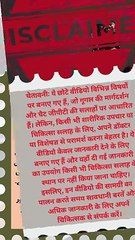 ISCLAIME
चेतावनी: ये छोटे वीडियो विभिन्न विषयों
पर बनाए गए हैं, जो गूगल की मार्गदर्शन
और चैट जीपीटी की सलाहों पर आधारित
हैं। लेकिन, किसी भी शारीरिक उपचार या
चिकित्सा सलाह के लिए, अपने डॉक्टर
या विशेषज्ञ से परामर्श करना बेहतर है। ये
वीडियो केवल जानकारी देने के लिए
बनाए गए हैं और यहाँ दी गई जानकारी
का उपयोग किसी भी चिकित्सा सलाह के
स्थान पर नहीं किया जाना चाहिए।
इसलिए, इन वीडियो की सामग्री का
पालन करते समय सावधानी बरतें और
अधिक जानकारी के लिए अपने
चिकित्सक से संपर्क करें।